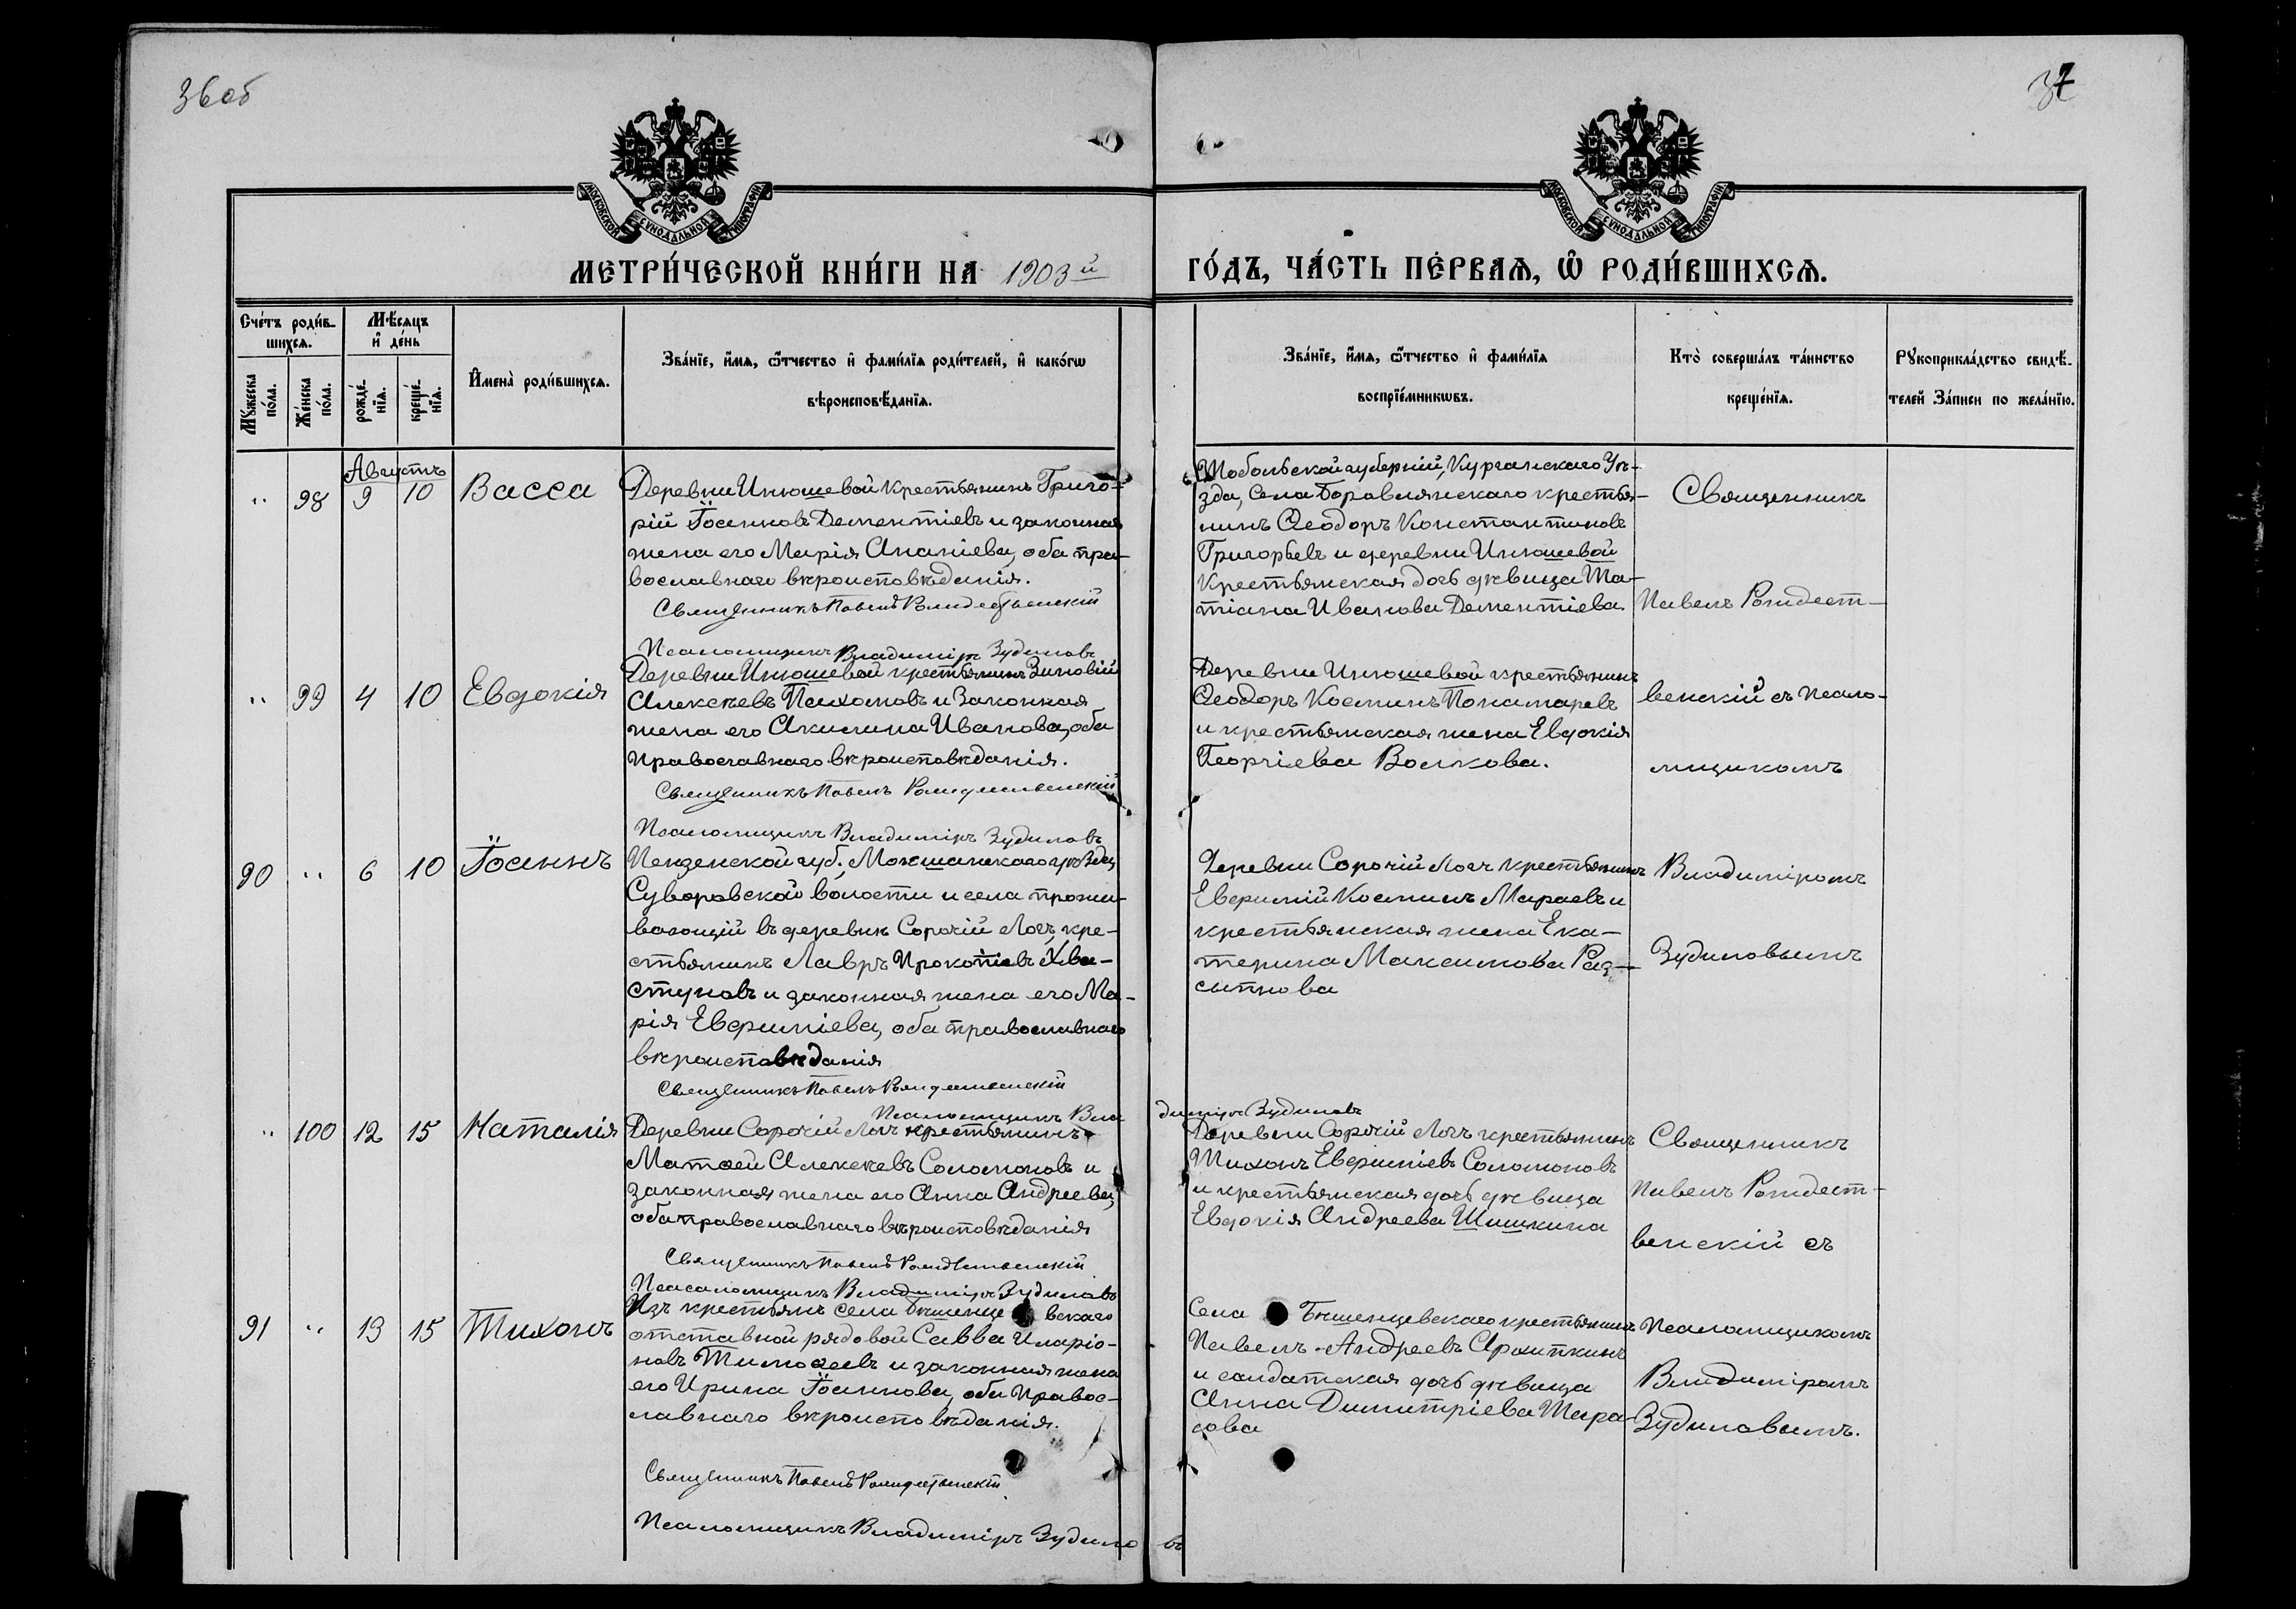 36 об
37
МОСКОВСКОЙ СѴНОДАЛЬНОЙ ТИПОГРАФІИ
МОСКОВСКОЙ СѴНОДАЛЬНОЙ ТИПОГРАФІИ
МЕТРИ́ЧЕСКОЙ КНИ́ГИ НА 1903 й
ГО́ДЪ, ЧА́СТЬ ПЕ́РВАѦ, Ѡ РОДИ́ВШИХСѦ.
Сче́тъ роди́в-
шихсѧ.
Мꙋ́жеска
по́ла.
Же́нска
по́ла.
Мѣ́сѧцъ
и де́нь
рожде́-
нїѧ.
креще́-
нїѧ.
Имена̀ роди́вшихсѧ.
Зва́нїе, и́мѧ, ѻ́тчество и фами́лїѧ роди́телей, и како́гѡ
вѣроисповѣ́данїѧ.
Зва́нїе, и́мѧ, ѻ́тчество и фами́лїѧ
воспрїе́мникѡвъ.
Кто̀ соверша́лъ та́инство
креще́нїѧ.
Рꙋкоприкла́дство свидѣ́-
телей За́писи по жела́нїю.
Августъ
" 98 9 10 Васса
Деревни Инюшевой крестьянинъ Григо-
рій Іоанновъ Дементіевъ и законная
жена его Марія Ананіева, оба пра-
вославнаго вѣроисповѣданія.
Священникъ Павелъ Рождественскій
Псаломщикъ Владиміръ Зудиловъ
Тобольской губерніи, Курганскаго Уѣ-
зда, Села Боровлянскаго крестья-
нинъ Ѳеодоръ Константиновъ
Григорьевъ и деревни Инюшевой
крестьянская дочь дѣвица Та-
тіана Иванова Дементіева
Священникъ
Павелъ Рождест-
" 99 4 10 Евдокія
Деревни Инюшевой крестьянинъ Зиновій
Алексѣевъ Пахомовъ и Законная
жена его Акилина Иванова, оба
православнаго вѣроисповѣданія.
Священникъ Павелъ Рождественскій
Псаломщикъ Владиміръ Зудиловъ
Деревни Инюшевой крестьянинъ
Ѳеодоръ Косминъ Понамаревъ
и крестьянская жена Евдокія
Георгіева Волкова.
венскій съ псало-
мщикомъ
90 " 6 10 Іоаннъ
Пензенской губ., Мокшанскаго уѣзда,
Суворовской волости и села прожи-
вающій въ деревнѣ Сорочій Логъ, кре-
стьянинъ Лавръ Прокопіевъ Хва-
стуновъ и законная жена его Ма-
рія Евфиміева, оба православнаго
вѣроисповѣданія
Священникъ Павелъ Рождественскій
Псаломщикъ Владиміръ Зудиловъ
Деревни Сорочій Логъ крестьянинъ
Евфимій Косминъ Мараевъ и
крестьянская жена Ека-
терина Максимова Раз-
сыпнова
Владиміромъ
Зудиловымъ
" 100 12 15 Наталія
Деревни Сорочій Логъ крестьянинъ
Матѳей Алексѣевъ Соломоновъ и
законная жена его Анна Андреева,
оба православнаго вѣроисповѣданія
Священникъ Павелъ Рождественскій
Псаломщикъ Владиміръ Зудиловъ
Деревни Сорочій Логъ крестьянинъ
Тихонъ Евфиміевъ Соломоновъ
и крестьянская дочь дѣвица
Евдокія Андреева Шишкина
Священникъ
Павелъ Рождест-
венскій съ
91 " 13 15 Тихонъ
Изъ крестьянъ села Бѣшенцевскаго
отставной рядовой Савва Иларіо-
новъ Тимоѳеевъ и законная жена
его Ирина Іоаннова, оба правос-
лавнаго вѣроисповѣданія.
Священникъ Павелъ Рождественскій
Псаломщикъ Владиміръ Зудиловъ
Села Бѣшенцевскаго крестьянинъ
Павелъ Андреевъ
и солдатская дочь дѣвица
Анна Димитріева Тара-
сова
Псаломщикомъ
Владиміромъ
Зудиловымъ.